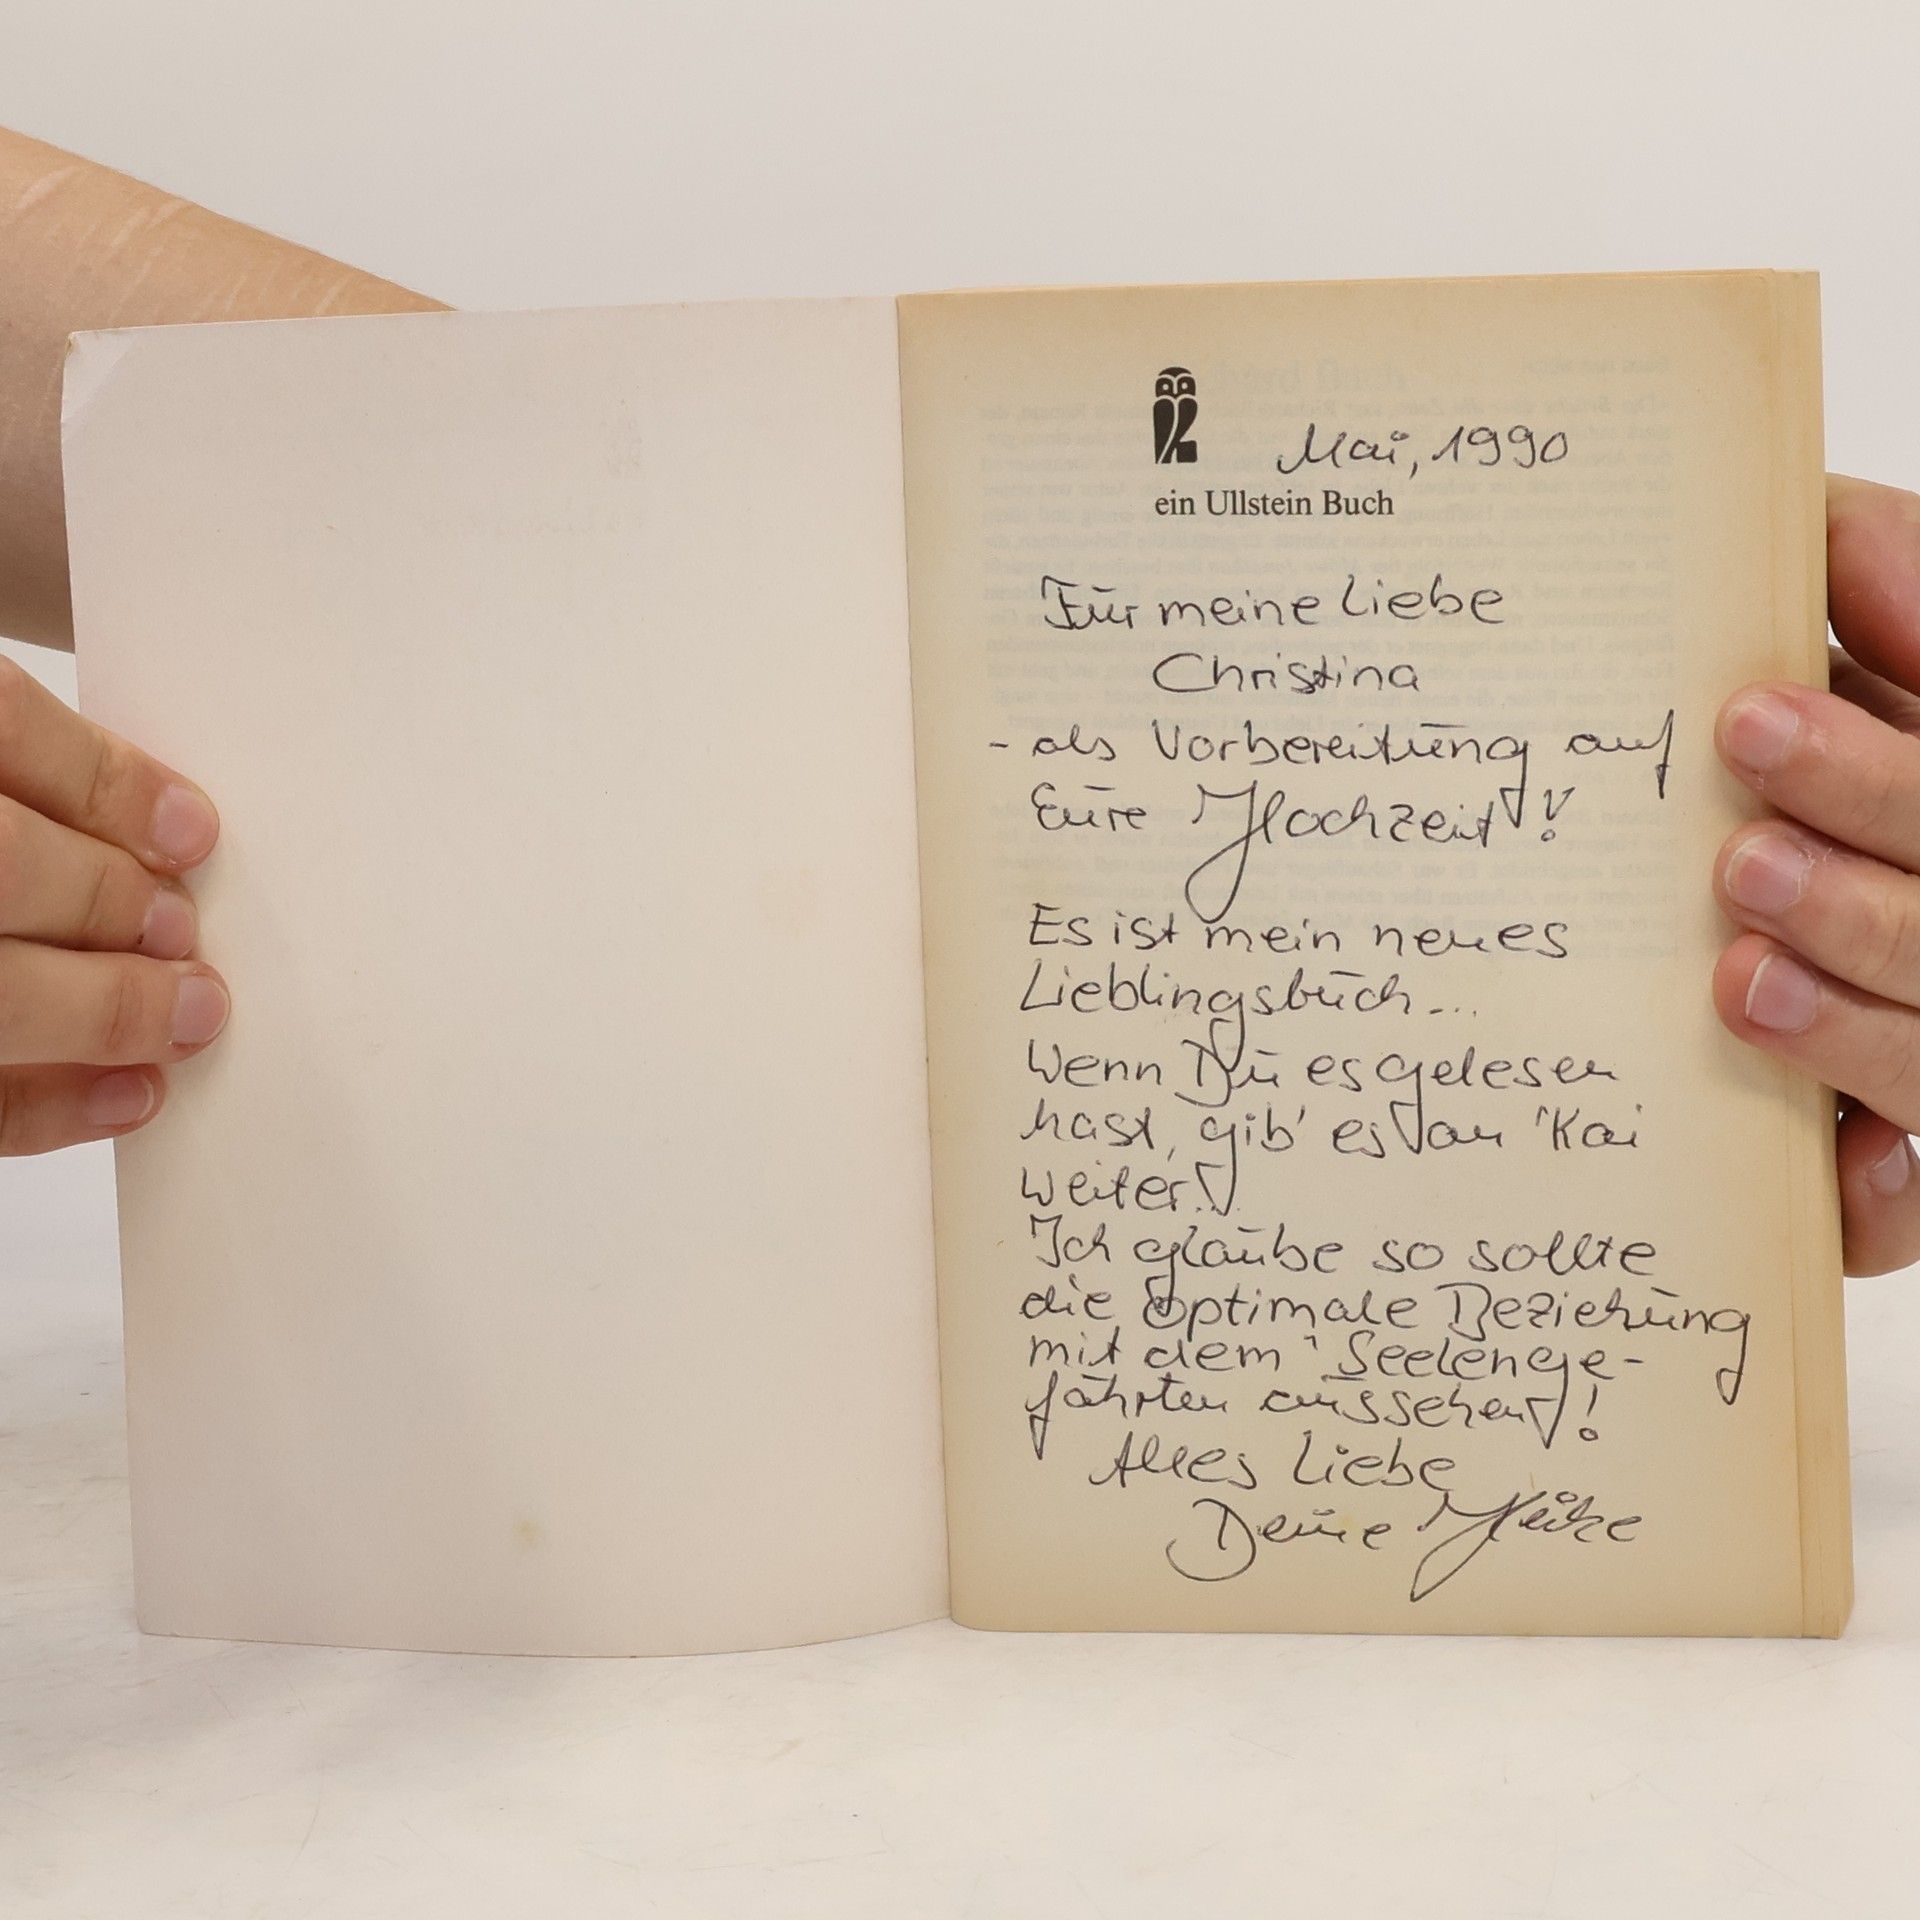 Mai, 1990
ein Ullstein Buch
Für meine Liebe
Christina
- als Vorbereitung auf
Eure Hochzeit!
Es ist mein neues
Lieblingsbuch...
Wenn Du es gelesen
hast, gib' es an Kai
weiter..
Ich glaube so sollte
die optimale Beziehung
mit dem Seelenge-
fährten aussehen!
Alles Liebe
Deine Heike